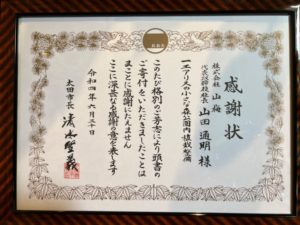 感謝状
株式会社 山梅
代表取締役社長 山田 通明 様
一 エアリスの小さな森公園内植栽整備
このたび格別のご芳志により頭書の
ご寄付をいただきましたことは
まことに感謝にたえません
ここに深甚なる感謝の意を表します
令和四年六月三十日
太田市長 清水聖義